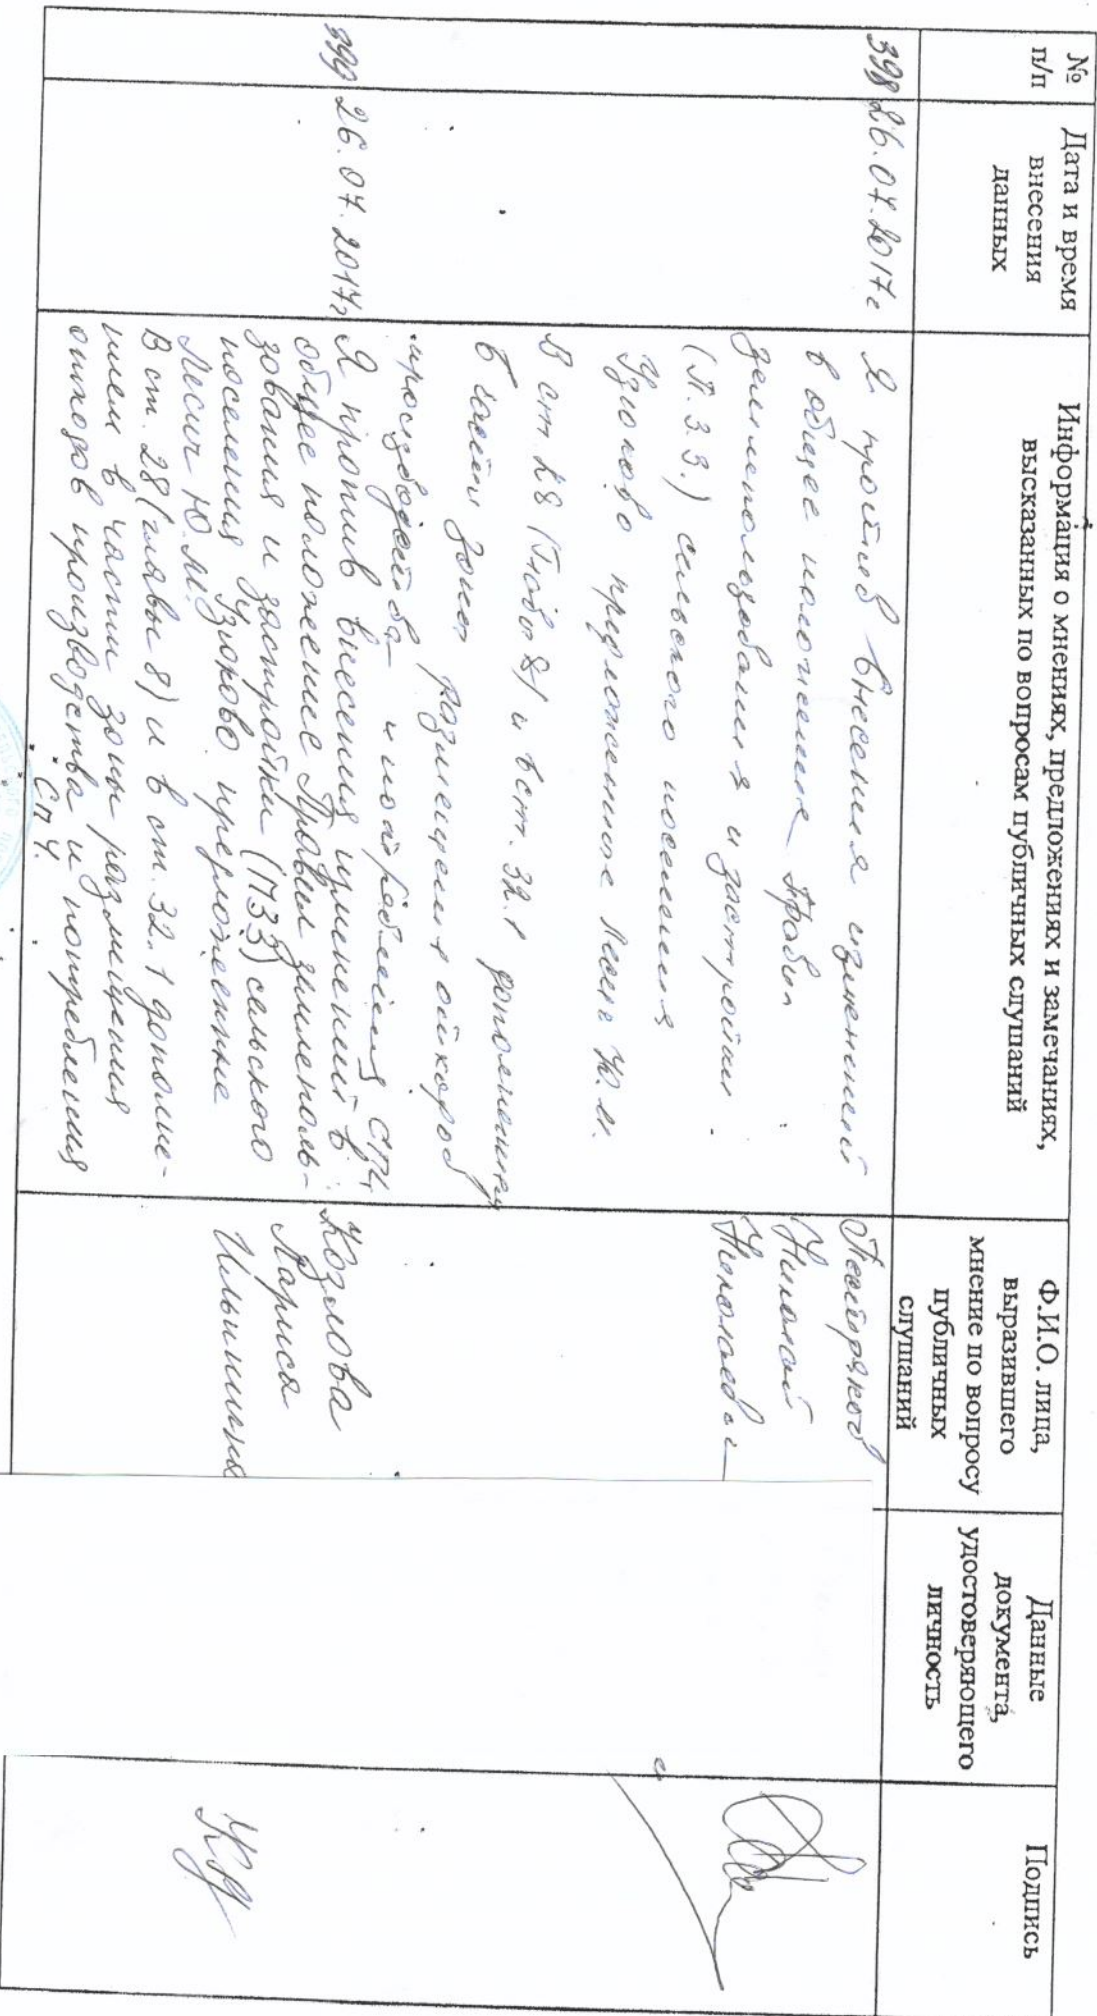 №
п/п
Дата и время
внесения
данных
Информация о мнениях, предложениях и замечаниях,
высказанных по вопросам публичных слушаний
Ф.И.О. лица,
выразившего
мнение по вопросу
публичных
слушаний
Данные
документа,
удостоверяющего
личность
Подпись
398
26.07.2017г
Я против внесения изменений
в общее положения Правил
землепользования и застройки
(П.З.З.) сельского поселения
Узюково предложенное Лесин Ю.М.
В ст 28 (Главы 8) и в ст. 32.1
в части зоны размещения отходов
производства и потребления СП4
Николай
Николаевич
399
26.07.2017г
Я против внесения изменений в
общее положение Правил землеполь-
зования и застройки (ПЗЗ) сельского
поселения Узюково предложенные
Лесин Ю.М.
В ст. 28 (главы 8) и в ст. 32.1 дополне-
нием в части зоны размещения
отходов производства и потребления
СП4.
Козлова
Лариса
Ильинична